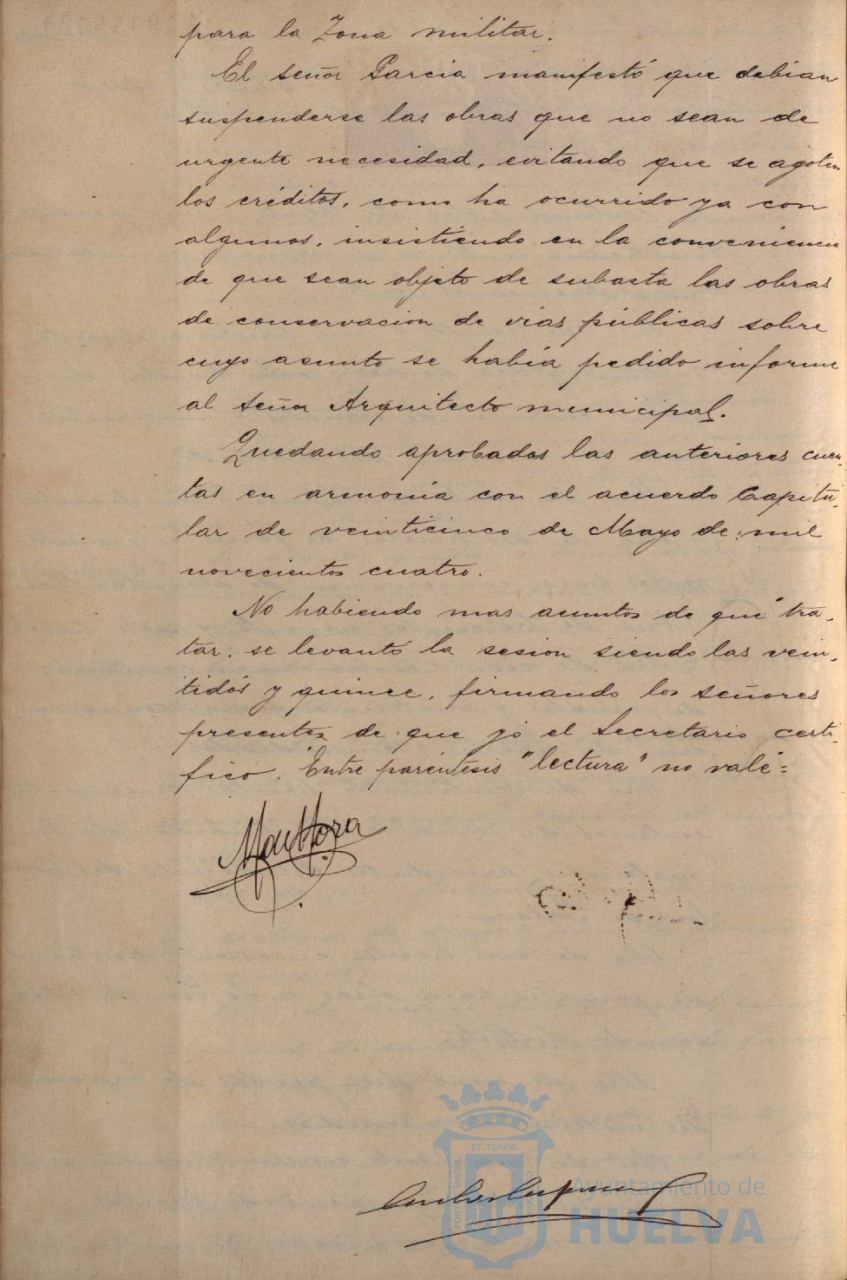 para la Zona militar.
El señor Garcia manifestó que debian
suspenderse las obras que no sean de
urgente necesidad, evitando que se agoten
los créditos, como ha ocurrido ya con
algunos, insistiendo en la conveniencia
de que sean objeto de subasta las obras
de conservacion de vías públicas sobre
cuyo asunto se había pedido informe
al señor Arquitecto municipal.
Quedando aprobados las anteriores cuen-
tas en armonía con el acuerdo Capitu-
lar de veinticinco de Mayo de mil
novecientos cuatro.
No habiendo mas asuntos de que tra-
tar, se levantó la sesion siendo las vein-
tidós y quince, firmando los señores
presentes de que yó el Secretario certi-
fico. Entre paréntesis "lectura" no vale=
ET TERRÆ
Ayuntamiento de
HUELVA